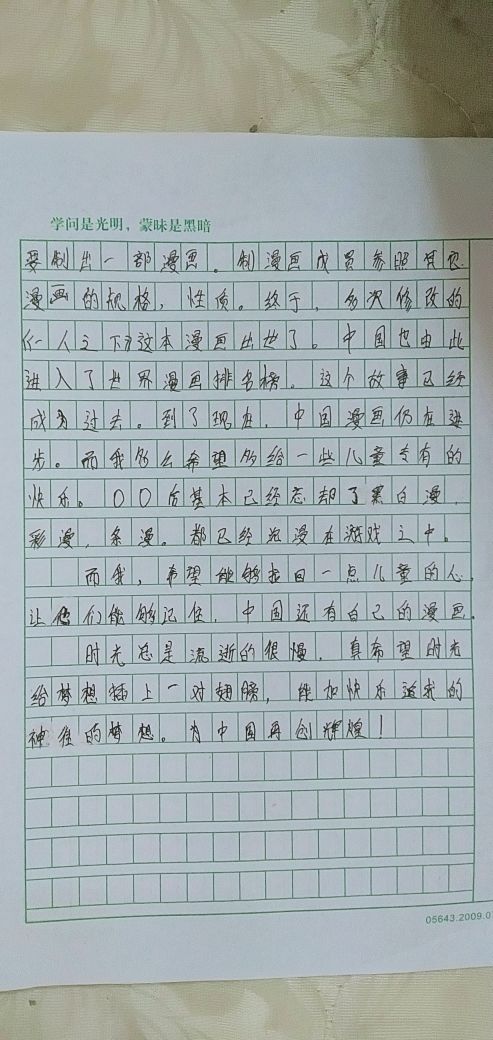 学问是光明，蒙昧是黑暗
要制出一部漫画。制漫画成员参照其它
漫画的规格，性质。终于，多次修改的
一人之下这本漫画出世了。中国也由此
进入了世界漫画排名榜。这个故事已经
成为过去。到了现在，中国漫画仍在进
步。而我多么希望多给一些儿童专有的
快乐。00后基本已经忘却了黑白漫，
彩漫，条漫。都已经沉漫在游戏之中。
而我，希望能够找回一点儿童的心，
让他们能够记住，中国还有自己的漫画。
时光总是流逝的很慢，真希望时光
给梦想插上一对翅膀，能加快乐追我的
神往的梦想。为中国再创辉煌！
05643.2009.0